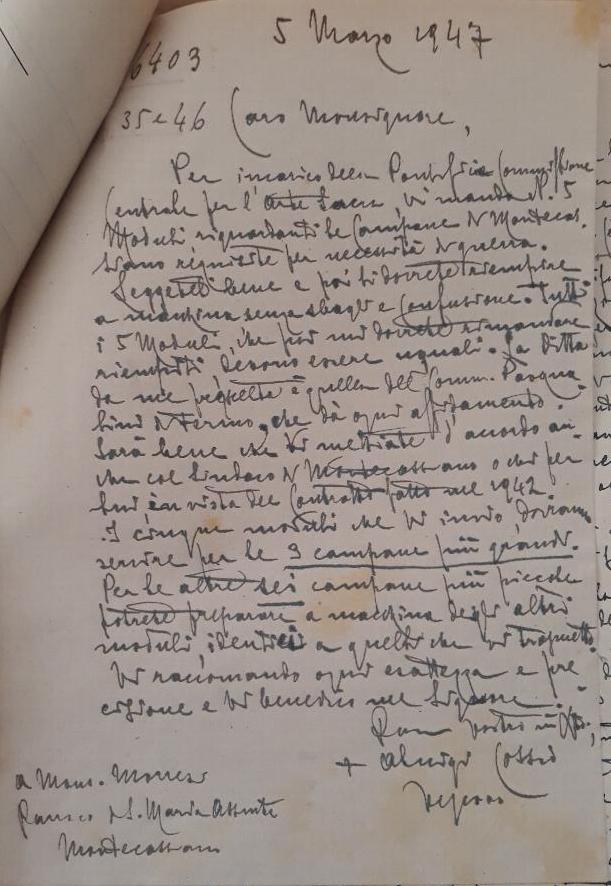 5 Marzo 1947
6403
35 e 46 Caro Monsignore,
Per incarico della Pontificia Commissione
Centrale per l'Arte Sacra, vi mando N. 5
Moduli riguardanti le Campane di Montecas.
siano requisite per necessità di guerra.
Leggeteli bene e poi li dovrete riempire
a macchina senza sbagli e confusione. Tutti
i 5 Moduli, che poi mi dovrete rimandare
riempiti, devono essere uguali. La ditta
da me prescelta è quella del Comm. Pasqua
lini di Fermo, che dà ogni affidamento.
Sarà bene che vi mettiate d'accordo an
che col Sindaco di Montecassiano o chi per
lui in vista del Contratto fatto nel 1942.
I cinque moduli che vi invio, dovranno
servire per le 3 campane più grandi.
Per le altre sei campane più piccole
potrete preparare a macchina degli altri
moduli, identici a quelli che vi trasmetto.
Vi raccomando ogni esattezza e pre
cisione e vi benedico nel Signore.
vostro in
+ Aluigi Cossio
Vescovo
a Mons.
Parroco di S. Maria Assunta
Montecassiano